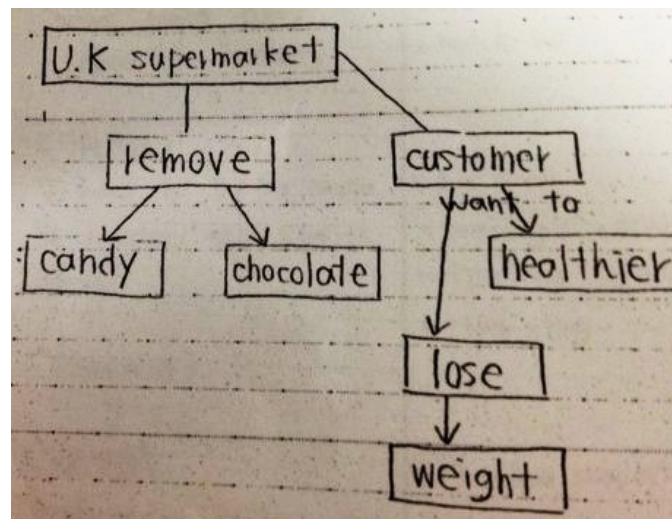 U.K supermarket
remove
customer
want to
candy
chocolate
healthier
lose
weight